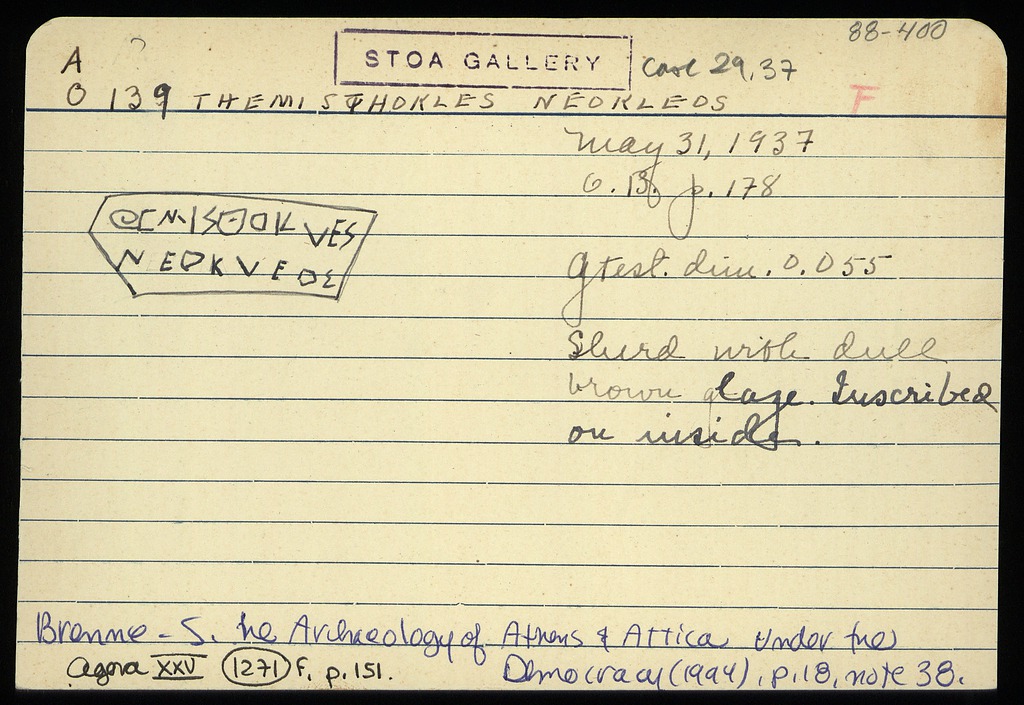 88-400
A STOA GALLERY Case 29, 37
O 139 THEMISTHOKLES NEOKLEOS F
May 31, 1937
O. B. p. 178
ΝΕΟΚVΕΟΣ
Gtest. dim. 0.055
Sherd with dull
brown glaze. Inscribed
on inside.
Brenne - S. he Archaeology of Athens & Attica under the
Democracy (1994), p. 18, note 38.
Agora XXV 1271 F, p. 151.